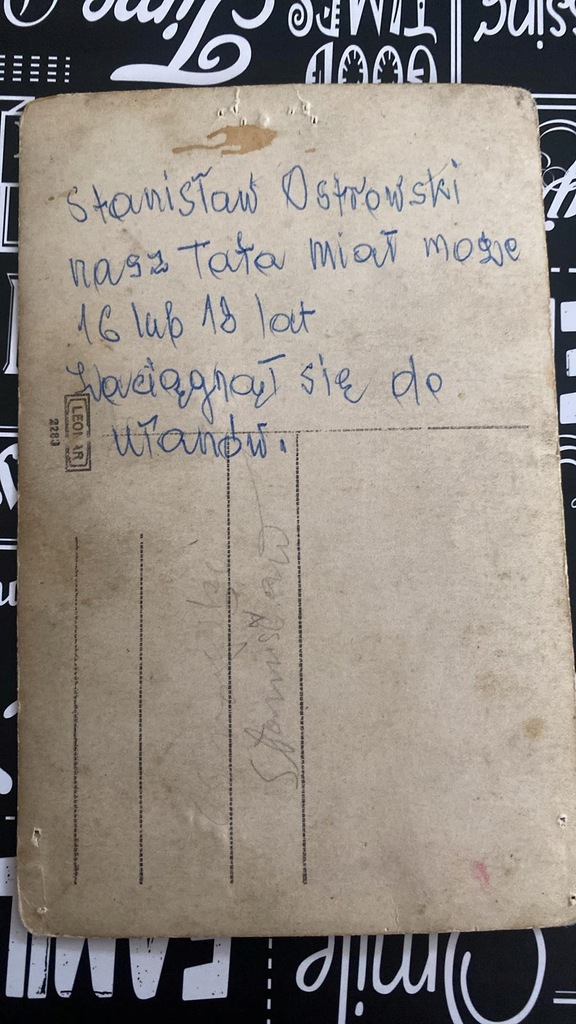 Stanisław Ostrowski
nasz Tata miał może
16 lub 18 lat
Zaciągnął się do
ułanów.
LEONAR
2283
Stanisław
Time
GOOD
TIMES
FAMIL
Smile